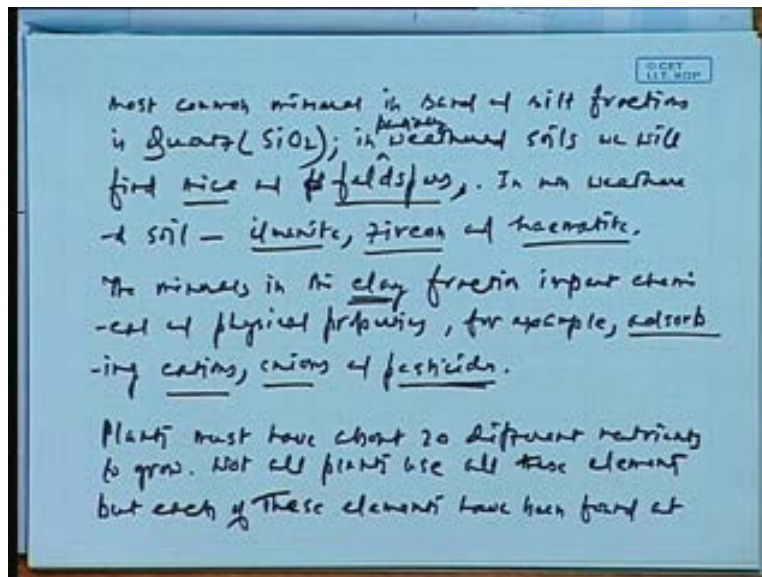 © CET
I.I.T. KGP
most common mineral in sand and silt fractions
is Quartz (SiO2); in weathered soils we will
find mica and feldspars,. In non weathere
-d soil – ilmenite, zircon and haematite.
The minerals in the clay fraction impart chemi
-cal and physical properties, for example, adsorb
-ing cations, anions and pesticides.
Plants must have about 20 different nutrients
to grow. Not all plants use all these element
but each of These elements have been found at